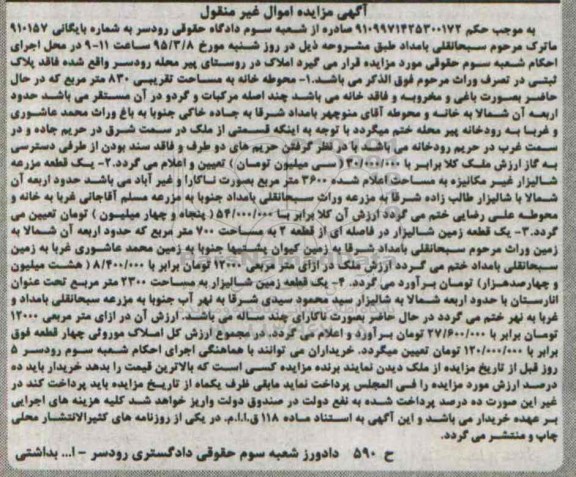 آگهی مزایده اموال غیر منقول
به موجب حکم ۹۱۰۹۹۷۱۴۲۵۳۰۰۱۷۲ صادره از شعبه سوم دادگاه حقوقی رودسر به شماره بایگانی ۹۱۰۱۵۷
ماترک مرحوم سبحانقلی بامداد طبق مشروحه ذیل در روز شنبه مورخ ۹۵/۳/۸ ساعت ۱۱-۹ در محل اجرای
احکام شعبه سوم حقوقی مورد مزایده قرار می گیرد املاک در روستای پیر محله رودسر واقع شده فاقد پلاک
ثبتی در تصرف وراث مرحوم فوق الذکر می باشد.۱- محوطه خانه به مساحت تقریبی ۸۳۰ متر مربع که در حال
حاضر بصورت باغی و مخروبه و فاقد خانه می باشد چند اصله مرکبات و گردو در آن مستقر می باشد حدود
اربعه آن شمالا به خانه و محوطه آقای منوچهر بامداد شرقا به جاده خاکی جنوبا به باغ وراث محمد عاشوری
و غربا به رودخانه پیر محله ختم میگردد با توجه به اینکه قسمتی از ملک در سمت شرق در حریم جاده و در
سمت غرب در حریم رودخانه می باشد، با در نظر گرفتن حریم های دو طرف و فاقد سند بودن از طرفی دسترسی
به گاز ارزش ملک کلا برابر با ۳۰/۰۰۰/۰۰۰ (سی میلیون تومان) تعیین و اعلام می گردد.۲- یک قطعه مزرعه
شالیزار غیر مکانیزه به مساحت اعلام شده ۳۶۰۰ متر مربع بصورت ناکارا و غیر آباد می باشد حدود اربعه آن
شمالا با شالیزار طالب زاده شرقا به مزرعه وراث سبحانقلی بامداد جنوبا به مزرعه مسلم آقاجانی غربا به خانه و
محوطه علی رضایی ختم می گردد ارزش آن کلا برابر با ۵۴/۰۰۰/۰۰۰ ( پنجاه و چهار میلیون ) تومان تعیین می
گردد.۳- یک قطعه زمین شالیزار در فاصله ای از قطعه ۲ به مساحت ۷۰۰ متر مربع که حدود اربعه آن شمالا به
زمین وراث مرحوم سبحانقلی بامداد شرقا به زمین کیوان پشتیها جنوبا به زمین محمد عاشوری غربا به زمین
سبحانقلی بامداد ختم می گردد ارزش ملک در ازای متر مربعی ۱۲۰۰۰ تومان برابر با ۸/۴۰۰/۰۰۰ ( هشت میلیون
و چهارصدهزار) تومان برآورد می گردد. ۴- یک قطعه زمین شالیزار به مساحت ۲۳۰۰ متر مربع تحت عنوان
انارستان با حدود اربعه شمالا به شالیزار سید محمود سیدی شرقا به نهر آب جنوبا به مزرعه سبحانقلی بامداد و
غربا به نهر ختم می گردد در حال حاضر بصورت ناکارای چند ساله می باشد. ارزش آن در ازای متر مربعی ۱۲۰۰۰
تومان برابر با ۲۷/۶۰۰/۰۰۰ تومان برآورد و اعلام می گردد. در مجموع ارزش کل املاک موروثی چهار قطعه فوق
برابر با ۱۲۰/۰۰۰/۰۰۰ تومان تعیین میگردد. خریداران می توانند با هماهنگی اجرای احکام شعبه سوم رودسر ۵
روز قبل از تاریخ مزایده از ملک دیدن نمایند برنده مزایده کسی است که بالاترین قیمت را بدهد خریدار باید ده
درصد ارزش مورد مزایده را فی المجلس پرداخت نماید مابقی ظرف یکماه از تاریخ مزایده باید پرداخت کند در
غیر این صورت ده درصد پرداخت شده به نفع دولت در صندوق دولت واریز خواهد شد کلیه هزینه های اجرایی
بر عهده خریدار می باشد و این آگهی به استناد ماده ۱۱۸ ق.ا.ا.م. در یکی از روزنامه های کثیرالانتشار محلی
چاپ و منتشر می گردد.
ح ۵۹۰ دادورز شعبه سوم حقوقی دادگستری رودسر - ا... بداشتی